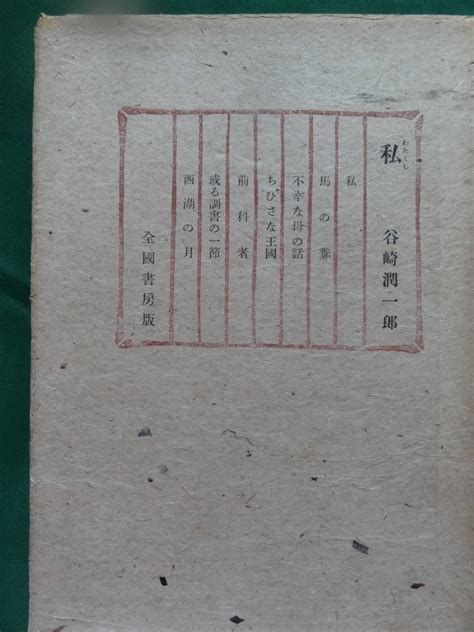 わたくし
私 谷崎潤一郎
私
馬の糞
不幸な母の話
ちひさな王國
前科者
或る調書の一節
西湖の月
全國書房版